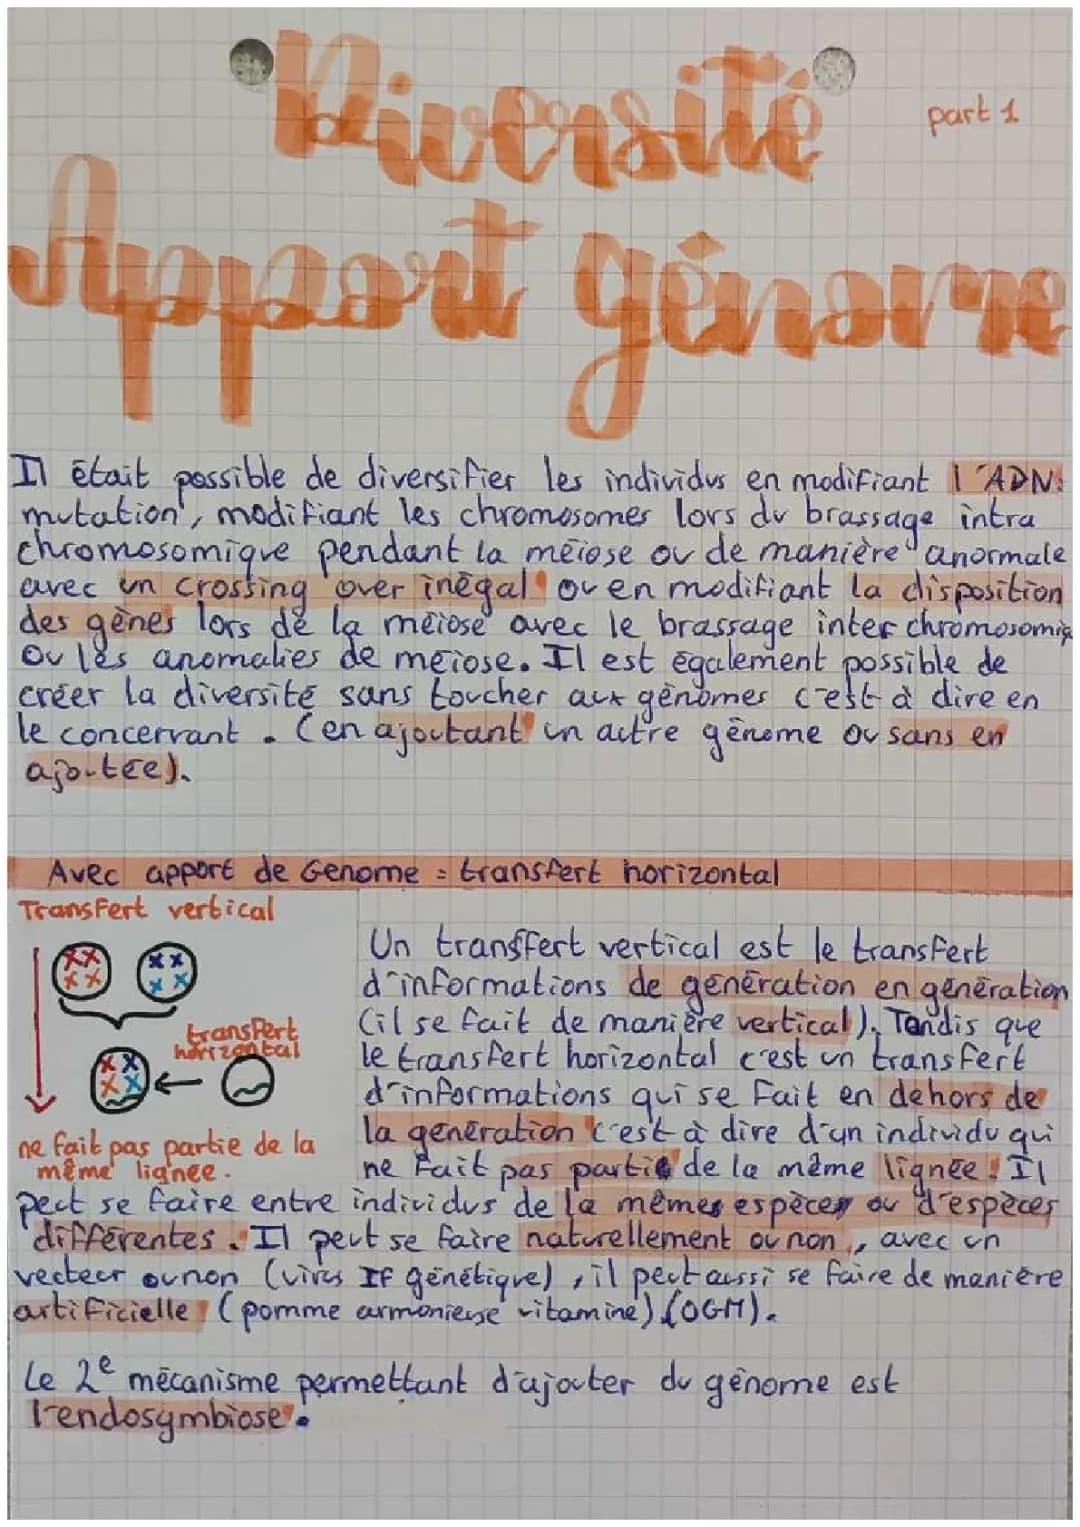 Diversité
part 1
Apport génome
Il était possible de diversifier les individus en modifiant l'ADN:
mutation, modifiant les chromosomes lors du brassage intra
chromosomique pendant la méiose ou de manière anormale
avec un crossing over inégal ou en modifiant la disposition
des gènes lors de la méiose avec le brassage inter chromosomiq
Ou les anomalies de méiose. Il est également possible de
créer la diversité sans toucher aux génomes c'est à dire en
le concervant. (en ajoutant un autre génome ou sans en
ajoutée).
Avec apport de Genome = transfert horizontal
Transfert vertical
transfert
horizontal
ne fait pas partie de la
même lignée.
Un transffert vertical est le transfert
d'informations de génération en génération
(il se fait de manière vertical). Tandis que
le transfert horizontal c'est un transfert
d'informations qui se fait en dehors de
la génération c'est à dire d'un individu qui
ne fait pas partie de la même lignée. Il
peut se faire entre individus de la mêmes espèces ou d'espèces
différentes. Il peut se faire naturellement ou non, avec un
vecteur ou non (virus IF génétique), il peut aussi se faire de manière
artificielle (pomme armonieuse vitamine) (OGM).
Le 2e mécanisme permettant d'ajouter du génome est
l'endosymbiose.